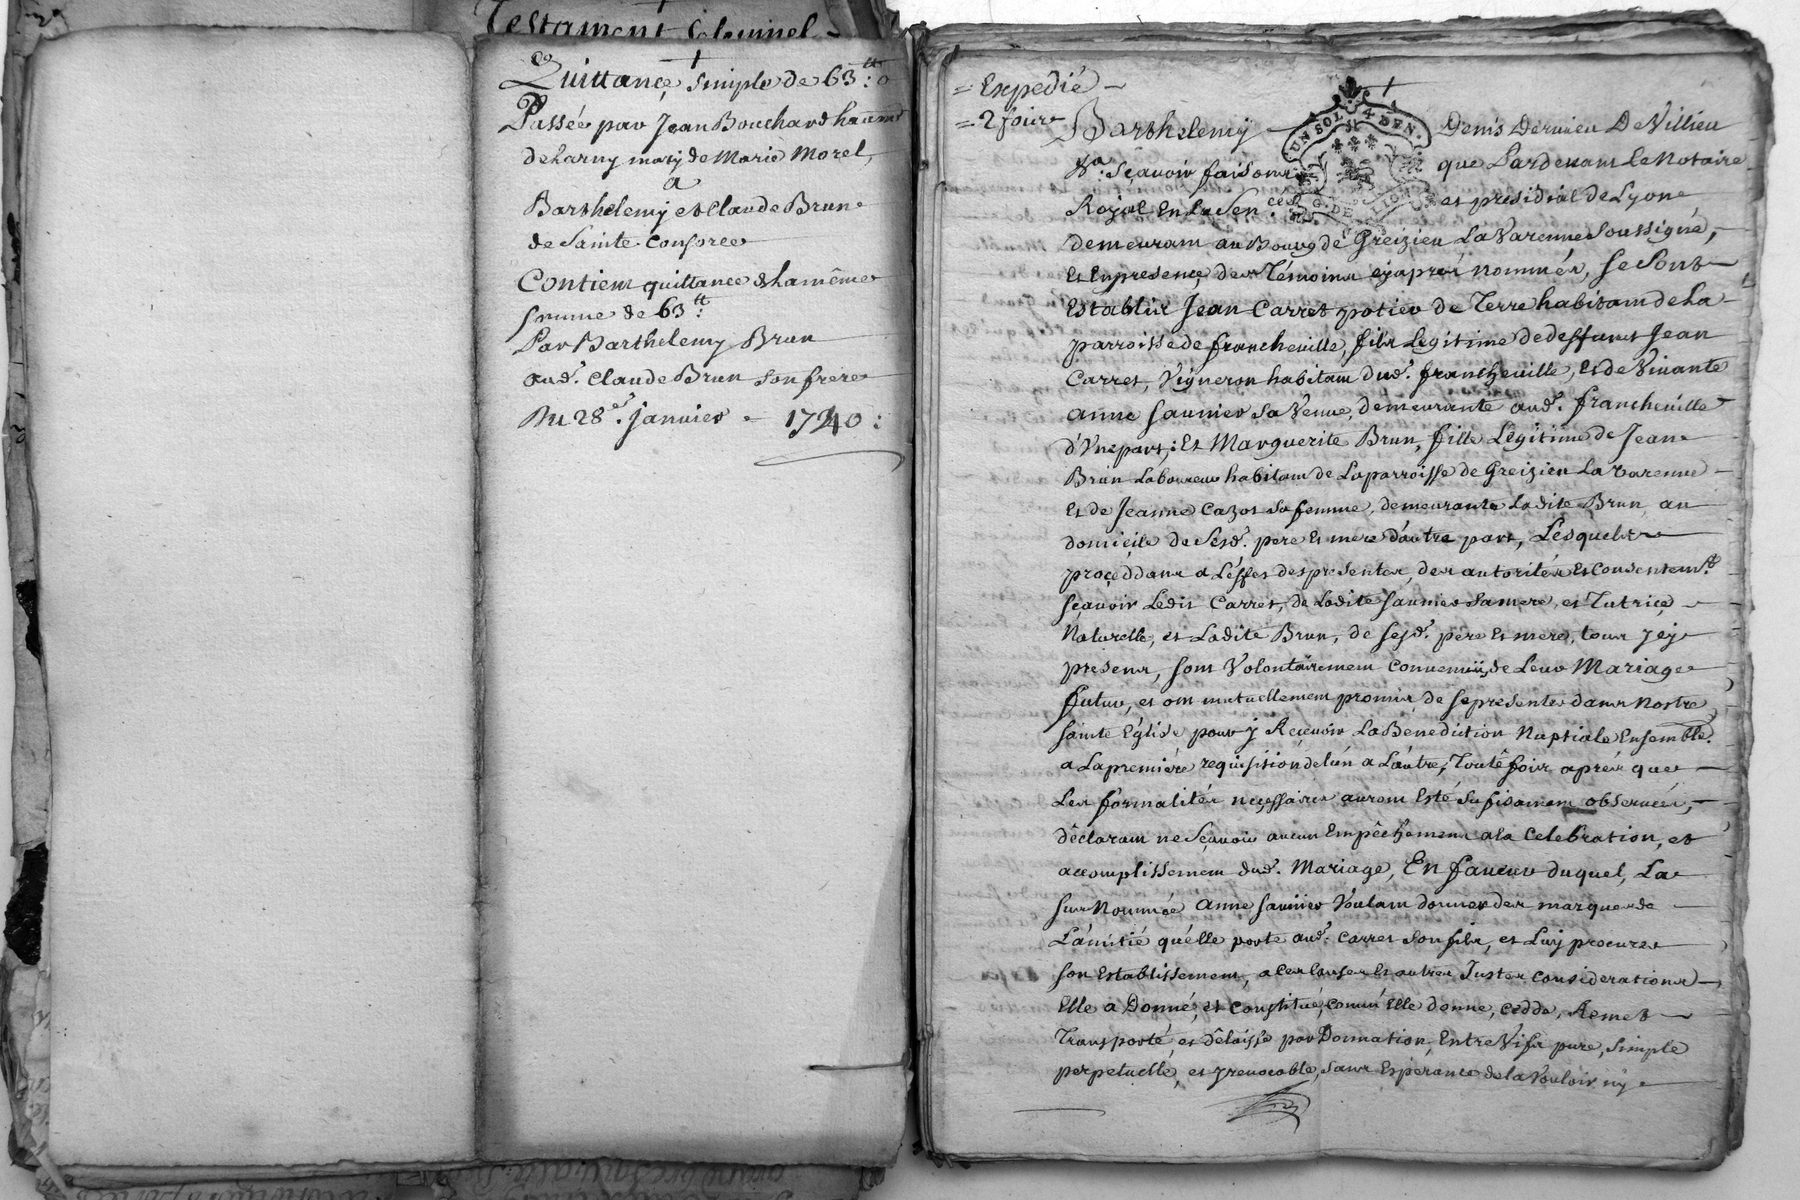 Testament solemnel
+
Quittance simple de 63 tt: 0
Passée par Jean Bouchard
delarny mary de Marie Morel,
a
Barthelemy et Claude Brun
de Sainte Consorce
Contient quittance de la même
somme de 63 tt:
Par Barthelemy Brun
aud. Claude Brun son frere
Du 28e. janvier = 1740 :
= Expedié –
= 2 foix
+
UN SOL 4 DEN.
G. DE LION
Barthelemy Denis Dervieu De Villieu
sçavoir faisons que Pardevant le Notaire
Royal En la Sen.cée et presidial de Lyon
demeurant au Bourg de Greizieu La Varenne soussigné,
Et En presence des Témoins cy apres nommés, se sont
Establis Jean Carret potier de Terre habitant de La
parroisse de francheville, fils Legitime de deffunt Jean
Carret, Vigneron habitant dud. francheville, Et de Vivante
anne saunier sa Veuve, demeurante aud. francheville
d'Vne part; Et Marguerite Brun, fille Légitime de Jean
Brun Laboureur habitant de La parroisse de Greizieu La varenne
Et de Jeanne Cazot sa femme, demeurante Ladite Brun au
domicile de Sesd. pere Et mere d'autre part, Lésquelles
proceddant a L'éffet des presentes, des autorités Et Consentemt.
sçavoir Ledit Carret, de Ladite saunier sa mere, et Tutrice
Naturelle, et Ladite Brun, de sesd. pere Et mere, tous jcy
presens, sont Volontairement convenus de Leur Mariage
futur, et ont mutuellement promis de se presenter dans Nostre
sainte Eglise pour y Recevoir La Benediction Nuptiale Ensemble.
a La premiére requisition de l'un a L'autre, Toutefois aprés que
Les formalités necessaires auront Esté sufisament observées,
déclarant ne sçavoir aucun Empêchement a la Celebration, et
accomplissement dud. Mariage, En faveur duquel, La
surnommée Anne saunier Voulant donner des marques de
L'amitié qu'elle porte aud. Carret son fils, et Luy procurer
son Establissement, a Ces Causes Et autres Justes Considerations
Elle a Donné, et Constitué, comm' Elle donne, cedde, Remet
Transporté et délaissé par Donnation, Entre Vifs pure, simple
perpetuelle, et jrrevocable, sans Espérance de la Vouloir ny